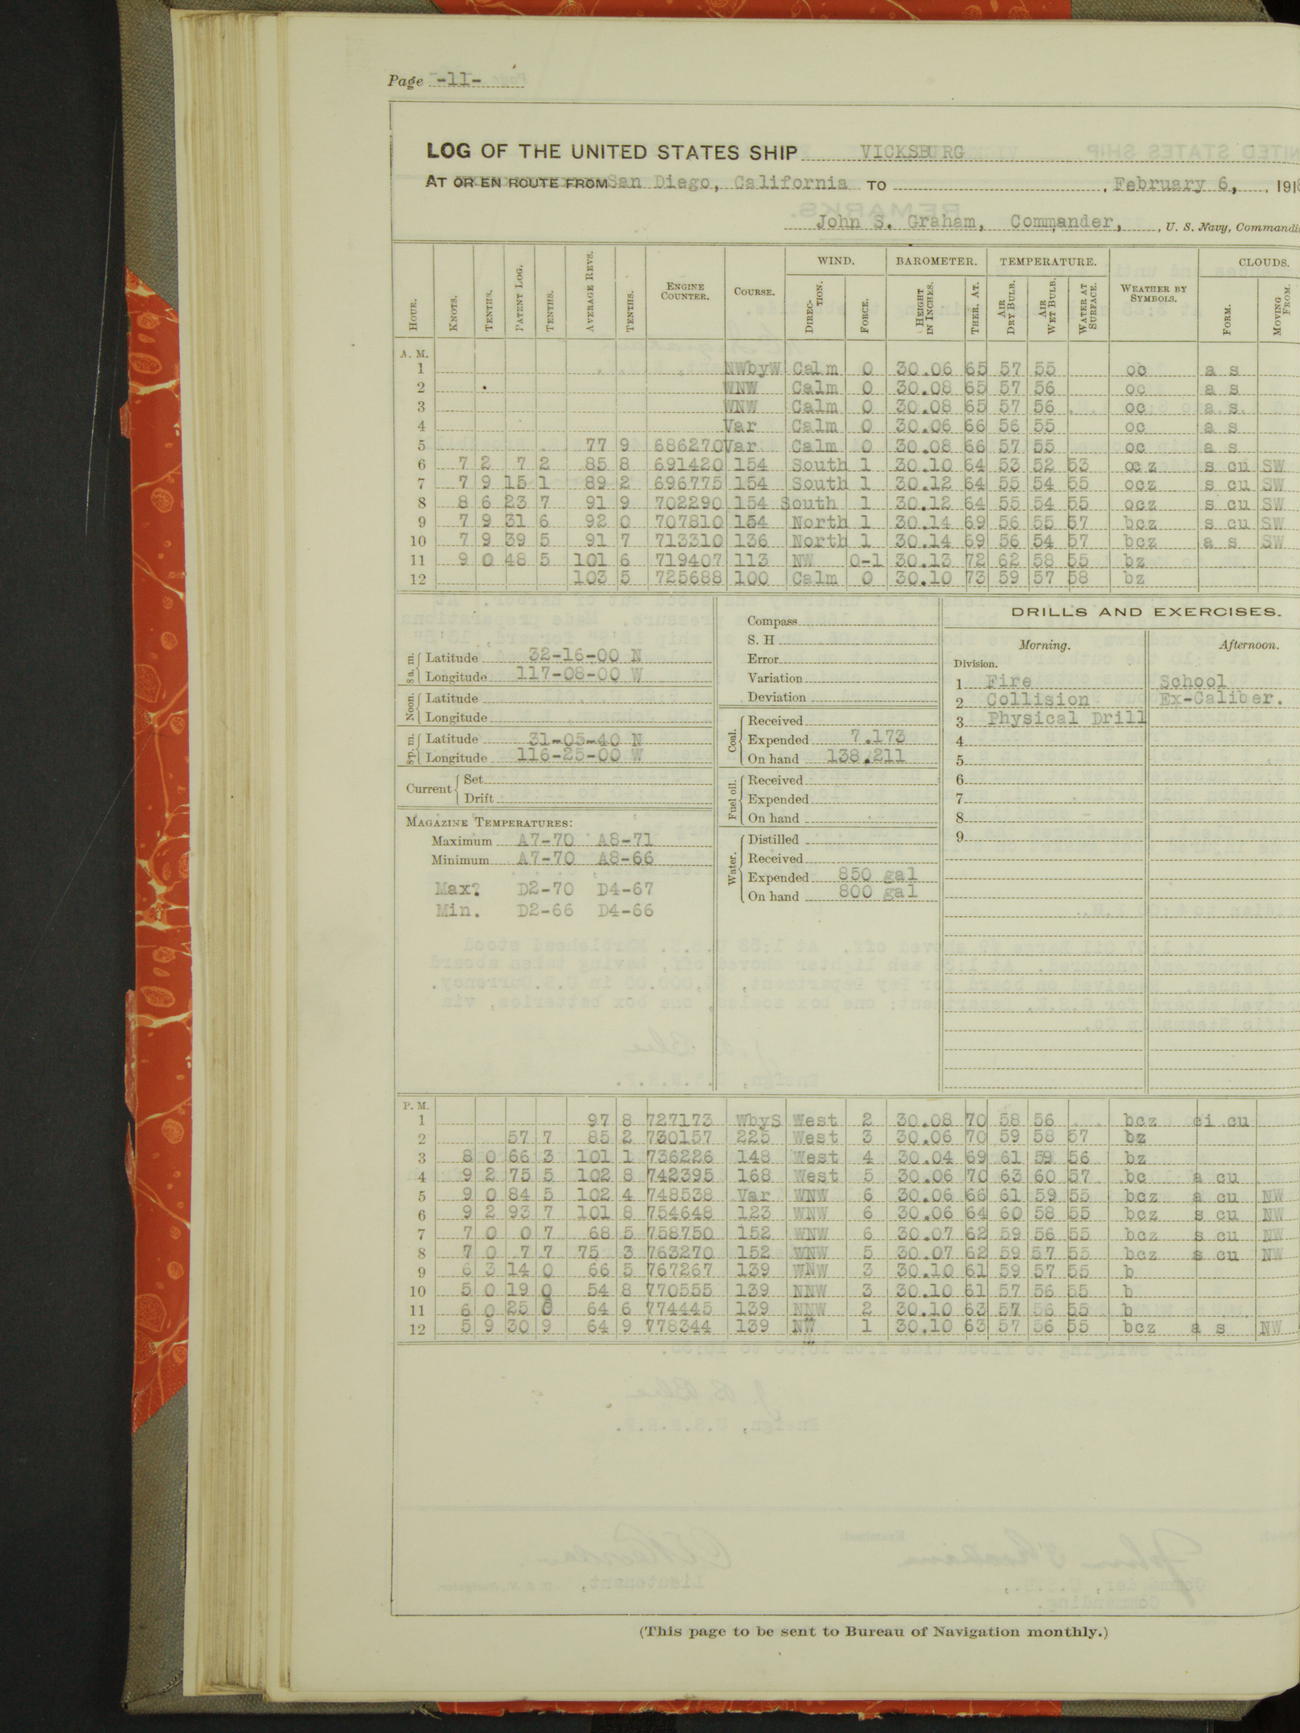 Page -11-
LOG OF THE UNITED STATES SHIP VICKSBURG
AT OR EN ROUTE FROM San Diego, California TO , February 6, , 191
John S. Graham, Commander, , U. S. Navy, Commandi
HOUR. KNOTS. TENTHS. PATENT LOG. TENTHS. AVERAGE REVS. TENTHS. ENGINE COUNTER. COURSE. WIND. DIRECTION. FORCE. BAROMETER. HEIGHT IN INCHES. THER. AT. TEMPERATURE. AIR DRY BULB. AIR WET BULB. WATER AT SURFACE. WEATHER BY SYMBOLS. CLOUDS. FORM. MOVING FROM.
A. M.
1 NWbyW Calm 0 30.06 65 57 55 oc a s
2 WNW Calm 0 30.08 65 57 56 oc a s
3 WNW Calm 0 30.08 65 57 56 oc a s
4 Var Calm 0 30.06 66 56 55 oc a s
5 77 9 686270 Var Calm 0 30.08 66 57 55 oc a s
6 7 2 7 2 85 8 691420 154 South 1 30.10 64 53 52 53 ocz s cu SW
7 7 9 15 1 89 2 696775 154 South 1 30.12 64 55 54 55 ocz s cu SW
8 8 6 23 7 91 9 702290 154 South 1 30.12 64 55 54 55 ocz s cu SW
9 7 9 31 6 92 0 707810 154 North 1 30.14 69 56 55 57 bcz s cu SW
10 7 9 39 5 91 7 713310 136 North 1 30.14 69 56 54 57 bcz a s SW
11 9 0 48 5 101 6 719407 113 NW 0-1 30.13 72 62 58 55 bz
12 103 5 725688 100 Calm 0 30.10 73 59 57 58 bz
8 a. m. Latitude 32-16-00 N
Longitude 117-08-00 W
Noon. Latitude
Longitude
8 p. m. Latitude 31-05-40 N
Longitude 116-25-00 W
Current Set
Drift
MAGAZINE TEMPERATURES:
Maximum A7-70 A8-71
Minimum A7-70 A8-66
Max? D2-70 D4-67
Min. D2-66 D4-66
Compass
S. H
Error
Variation
Deviation
Coal. Received
Expended 7.173
On hand 138.211
Fuel oil. Received
Expended
On hand
Water. Distilled
Received
Expended 850 gal
On hand 800 gal
DRILLS AND EXERCISES.
Morning. Afternoon.
Division.
1 Fire School
2 Collision Ex-Caliber.
3 Physical Drill
4
5
6
7
8
9
P. M.
1 97 8 727173 WbyS West 2 30.08 70 58 56 bcz ci cu
2 57 7 85 2 730157 225 West 3 30.06 70 59 58 57 bz
3 8 0 66 3 101 1 736226 148 West 4 30.04 69 61 59 56 bz
4 9 2 75 5 102 8 742395 168 West 5 30.06 70 63 60 57 bc a cu
5 9 0 84 5 102 4 748538 Var WNW 6 30.06 66 61 59 55 bcz a cu NW
6 9 2 93 7 101 8 754648 123 WNW 6 30.06 64 60 58 55 bcz s cu NW
7 7 0 0 7 68 5 758750 152 WNW 6 30.07 62 59 56 55 bcz s cu NW
8 7 0 7 7 75 3 763270 152 WNW 5 30.07 62 59 57 55 bcz s cu NW
9 6 3 14 0 66 5 767267 139 WNW 3 30.10 61 59 57 55 b
10 5 0 19 0 54 8 770555 139 NNW 3 30.10 61 57 56 55 b
11 6 0 25 0 64 6 774445 139 NNW 2 30.10 63 57 56 55 b
12 5 9 30 9 64 9 778344 139 NW 1 30.10 63 57 56 55 bcz a s NW
(This page to be sent to Bureau of Navigation monthly.)